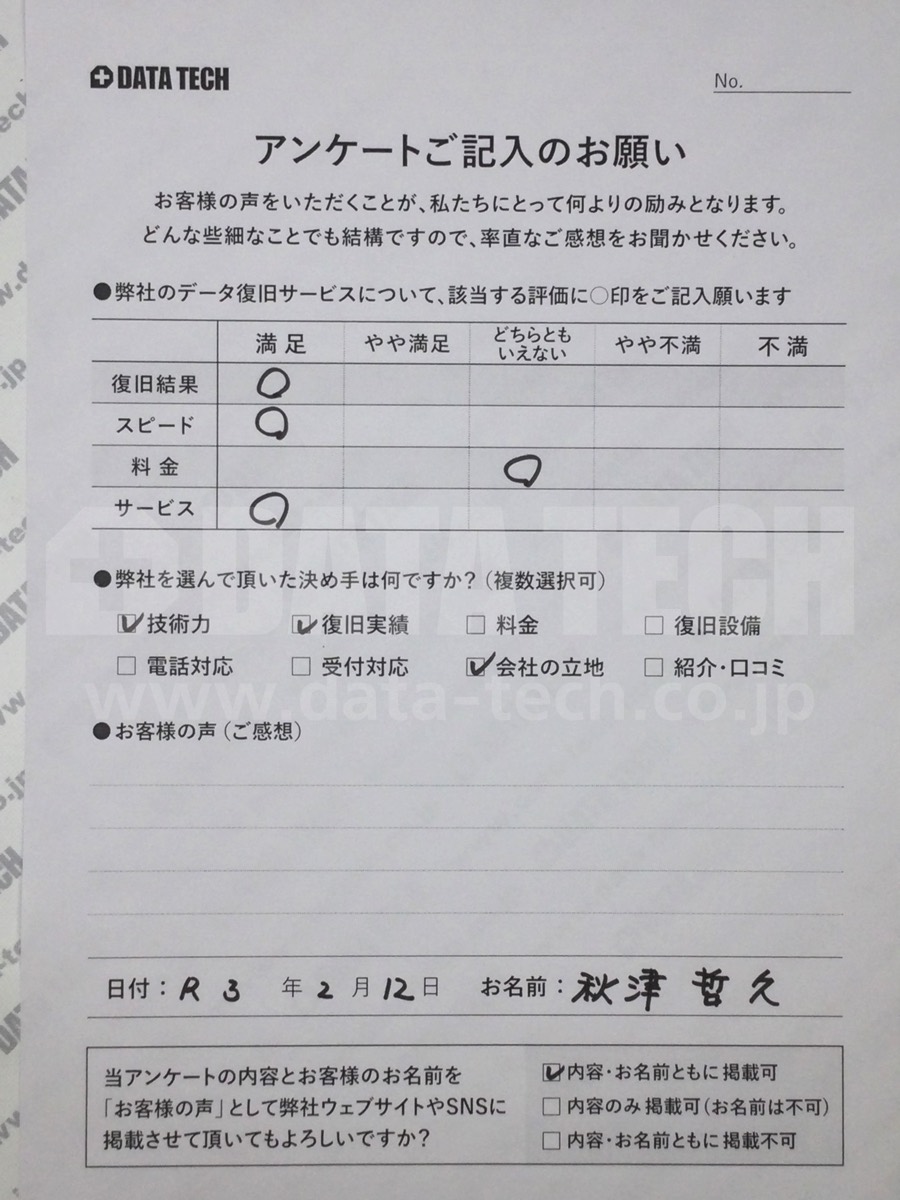 DATA TECH
No.
アンケートご記入のお願い
お客様の声をいただくことが、私たちにとって何よりの励みとなります。
どんな些細なことでも結構ですので、率直なご感想をお聞かせください。
●弊社のデータ復旧サービスについて、該当する評価に○印をご記入願います
満足 やや満足 どちらとも いえない やや不満 不満
復旧結果 ○
スピード ○
料金 ○
サービス ○
DATA TECH
●弊社を選んで頂いた決め手は何ですか?(複数選択可)
☑技術力 ☑復旧実績 □料金 □復旧設備
□電話対応 □受付対応 ☑会社の立地 □紹介・口コミ
www.data-tech.co.jp
●お客様の声(ご感想)
日付:R3年2月12日 お名前:秋津哲久
当アンケートの内容とお客様のお名前を
「お客様の声」として弊社ウェブサイトやSNSに
掲載させて頂いてもよろしいですか?
☑内容・お名前ともに掲載可
□内容のみ掲載可(お名前は不可)
□内容・お名前ともに掲載不可